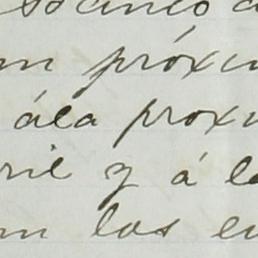 m próxi
á la proxi
ril y á la
m los en